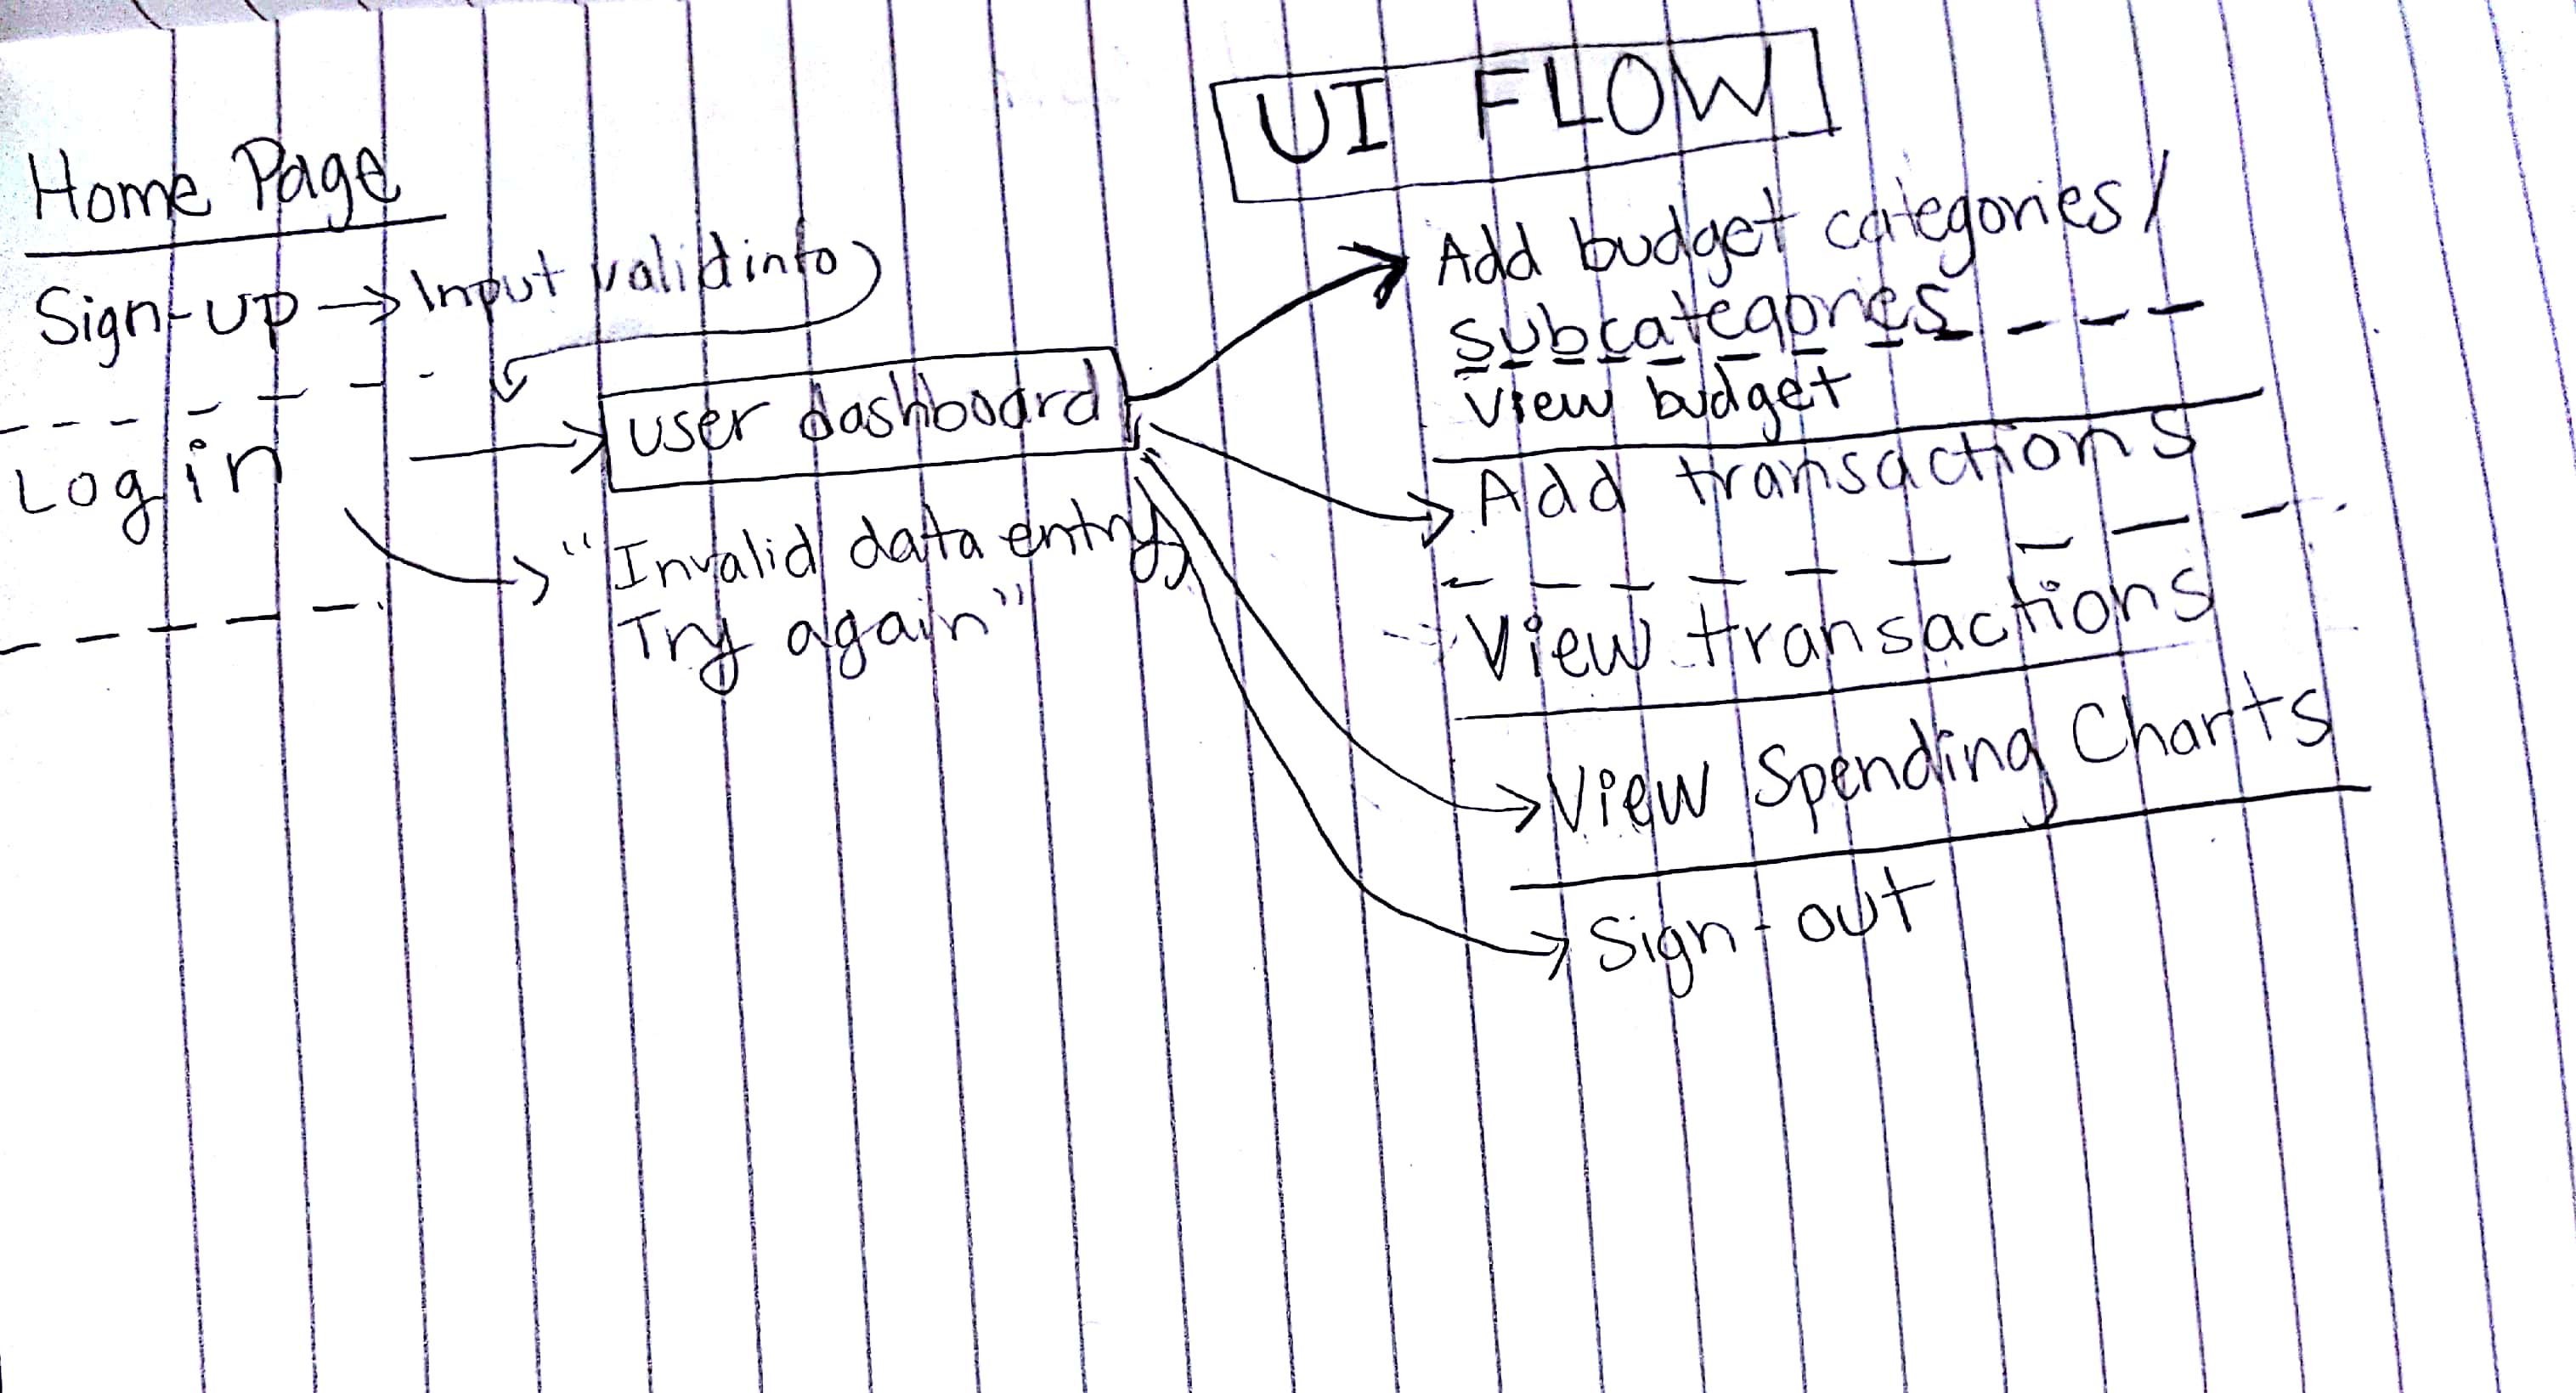 UI FLOW
Home Page
Sign-up → Input valid info
Log in
user dashboard
"Invalid data entry
Try again"
Add budget categories/
subcategories
view budget
Add transactions
View transactions
View Spending Charts
Sign-out